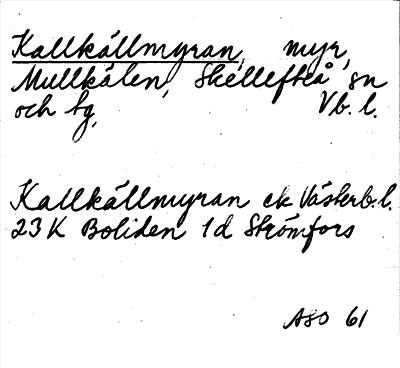 Kallkällmyran, myr,
Mullkälen, Skellefteå sn
och tg, Vb. l.
Kallkällmyran ek Västerb. l.
23 K Boliden 1d Strömfors
ASO 61